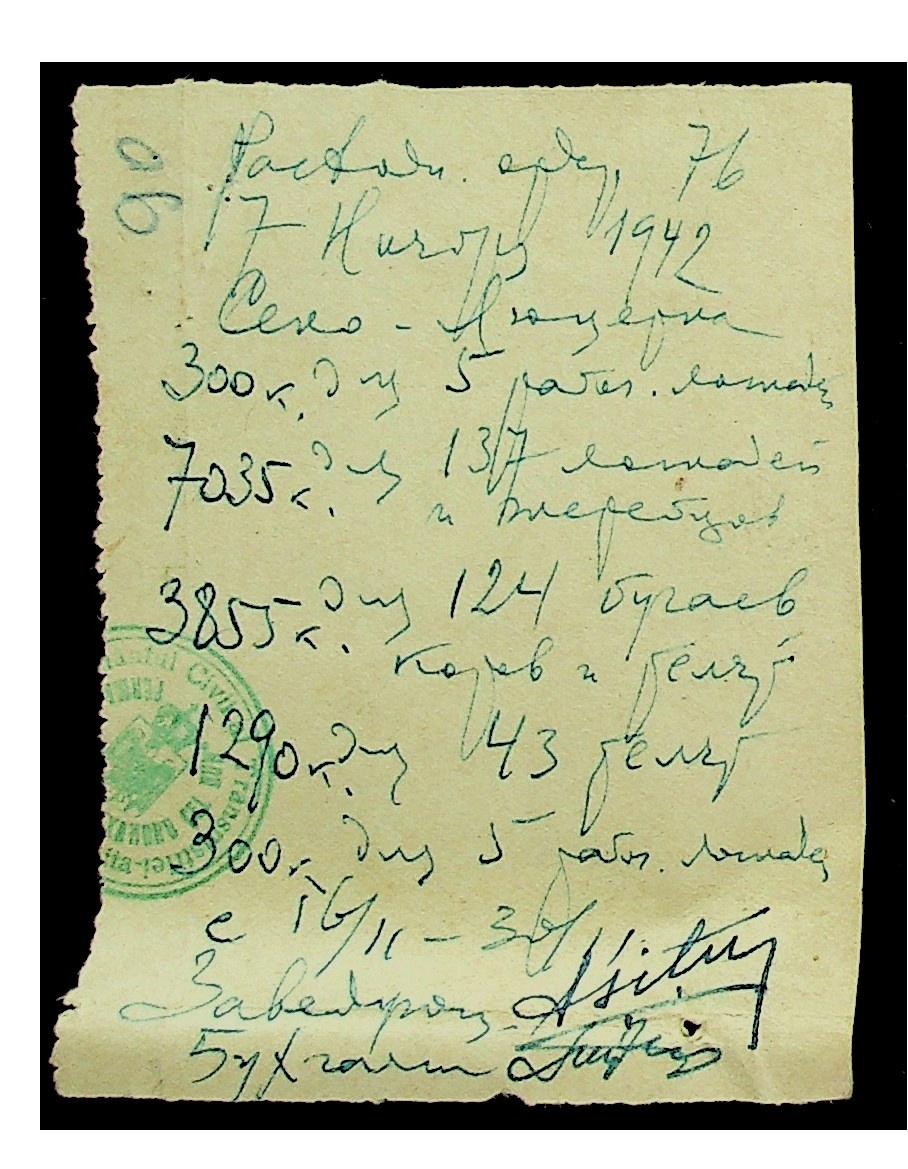 90
Расходн. орд. 76
7 Ноября 1942
Сено - Люцерна
300к. для 5 рабоч. лошадей
7035к. для 137 лошадей
и жеребцов
3855к. для 124 бугаев
Коров и телят
1290к. для 43 телят
300к. для 5 рабоч. лошадей
с 16/11 - 30/11
Заведующ.
Бухгалтер
Civile Transnistriei